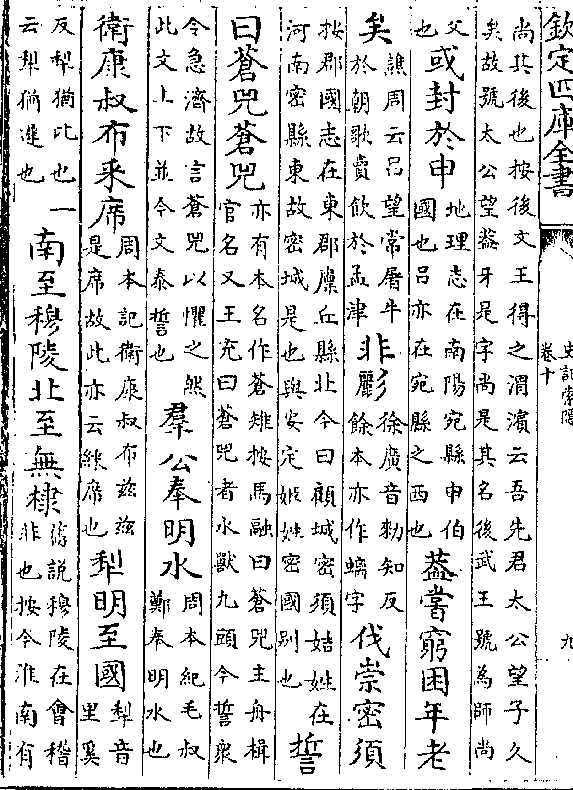 欽定四庫全書
史記索隱
卷十
九
尚其後也按後文王得之渭濱云吾先君太公望子久
矣故號太公望蓋牙是字尚是其名後武王號為師尚
父也或封於申地理志在南陽宛縣申伯國也吕亦在宛縣之西也蓋嘗窮困年老
矣譙周云吕望常屠牛於朝歌賣飲於孟津非彲徐廣音勑知反餘本亦作螭字伐崇密須
按郡國志在東郡廩丘縣北今曰顧城密須姞姓在河南密縣東故密城是也與安定姬姓密國别也誓
曰蒼兕蒼兕亦有本名作蒼雉按馬融曰蒼兕主舟楫官名又王充曰蒼兕者水獸九頭今誓衆
令急濟故言蒼兕以懼之然此文上下並今文泰誓也羣公奉明水周本紀毛叔鄭奉明水也
衛康叔布采席周本記衛康叔布兹兹是席故此亦云綵席也犁明至國犁音里奚
反犁猶比也一云犁猶遲也南至穆陵北至無棣舊說穆陵在會稽非也按今淮南有